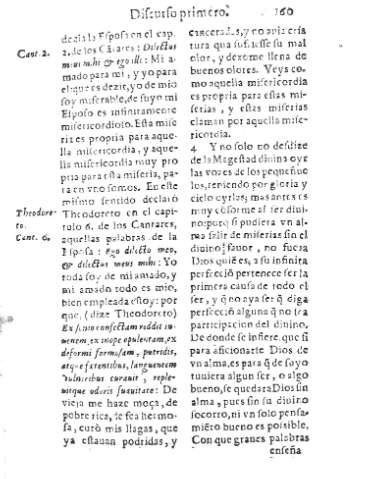 Discurso primero. 160
Cant. 2.
dezia la Esposa en el cap.
2. de los Cãtares: Dilectus
meus mihi & ego illi: Mi a-
mado para mi, y yo para
el que es dezir, yo de mio
soy miserable, de suyo mi
Esposo es infinitamente
misericordioso. Esta mise
ria es propria para aque-
lla misericordia, y aque-
lla misericordia muy pro
pria para esta miseria, pa-
ra en vno somos. En este
mismo sentido declarò
Theodore-
to.
Cant. 6.
Theodoreto en el capi-
tulo 6. de los Cantares,
aquellas palabras de la
Esposa: Ego dilecto meo,
& dilectus meus mihi: Yo
toda soy de mi amado, y
mi amado todo es mio,
bien empleada estoy: por
que, (dize Theodoreto)
Ex senio confectam reddit iu-
uenem, ex inope opulentam, ex
deformi formosam, putredis,
atque fœtentibus, languenem
vulneribus curauit, reple-
uitque odoris suauitate: De
vieja me haze moça, de
pobre rica, de fea hermo-
sa, curò mis llagas, que
ya estauan podridas, y
canceradas, y no auia cria
tura que sufriesse su mal
olor, y dexome llena de
buenos olores. Veys co-
mo aquella misericordia
es propria para estas mi-
serias, y estas miserias
claman por aquella mise-
ricordia.
4 Y no solo no desdize
de la Magestad diuina oyr
las vozes de los pequeñue
los, teniendo por gloria y
cielo oyrlas; mas antes es
muy cõforme al ser diui-
no: porq si pudiera vn al-
ma salir de miserias sin el
diuino fauor, no fuera
Dios quiẽ es, a su infinita
perfeciõ pertenece ser la
primera causa de todo el
ser, y q̃ no aya ser q̃ diga
perfeciõ alguna q̃ no la
participacion del diuino.
De donde se infiere, que si
para aficionarte Dios de
vn alma, es para q̃ de suyo
tuuiera algun ser, o algo
bueno, se quedara Dios sin
alma, pues sin su diuino
socorro, ni vn solo pensa-
miẽto bueno es possible.
Con que grandes palabras
enseña